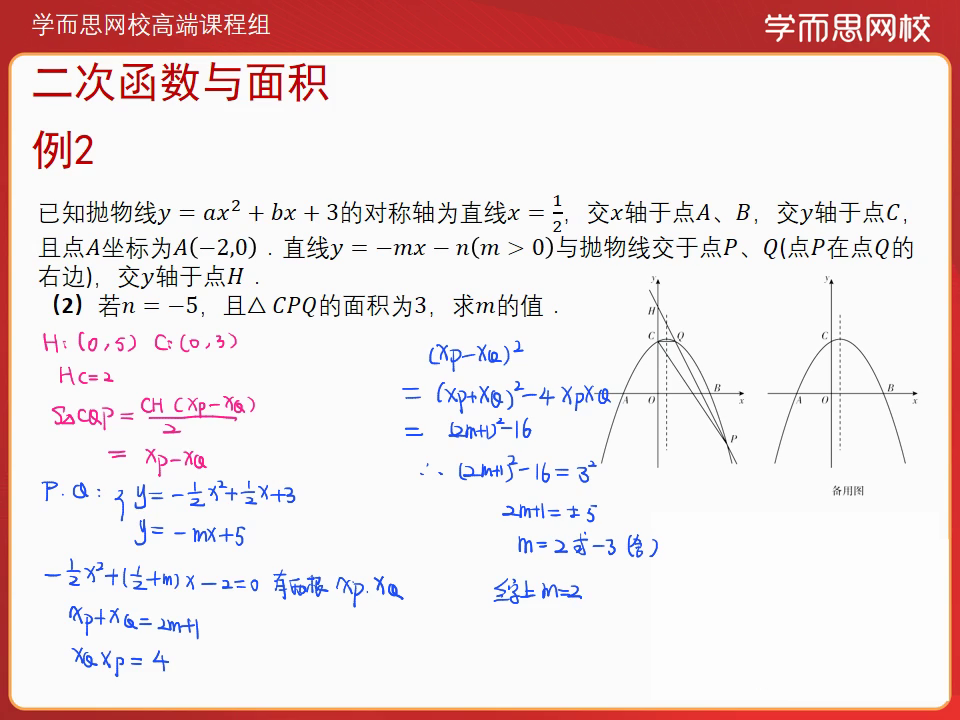 学而思网校高端课程组
学而思网校
二次函数与面积
例2
已知抛物线y = ax² + bx + 3的对称轴为直线x = 1/2，交x轴于点A、B，交y轴于点C，
且点A坐标为A(−2,0)．直线y = −mx − n(m > 0)与抛物线交于点P、Q(点P在点Q的
右边)，交y轴于点H．
（2）若n = −5，且△ CPQ的面积为3，求m的值．
H：(0,5) C：(0,3)
HC=2
S△CQP = CH(xp−xQ)/2
= xp−xQ
P.Q：{ y= −1/2x²+1/2x+3
y= −mx+5
−1/2x²+(1/2+m)x−2=0 有两根 xp.xQ
xp+xQ=2m+1
xQxp=4
(xp−xQ)²
= (xp+xQ)²−4xpxQ
= (2m+1)²−16
∴ (2m+1)²−16=3²
2m+1=±5
m=2或−3(舍)
综上m=2
y
H
C
Q
A
O
B
x
P
y
C
A
O
B
x
备用图